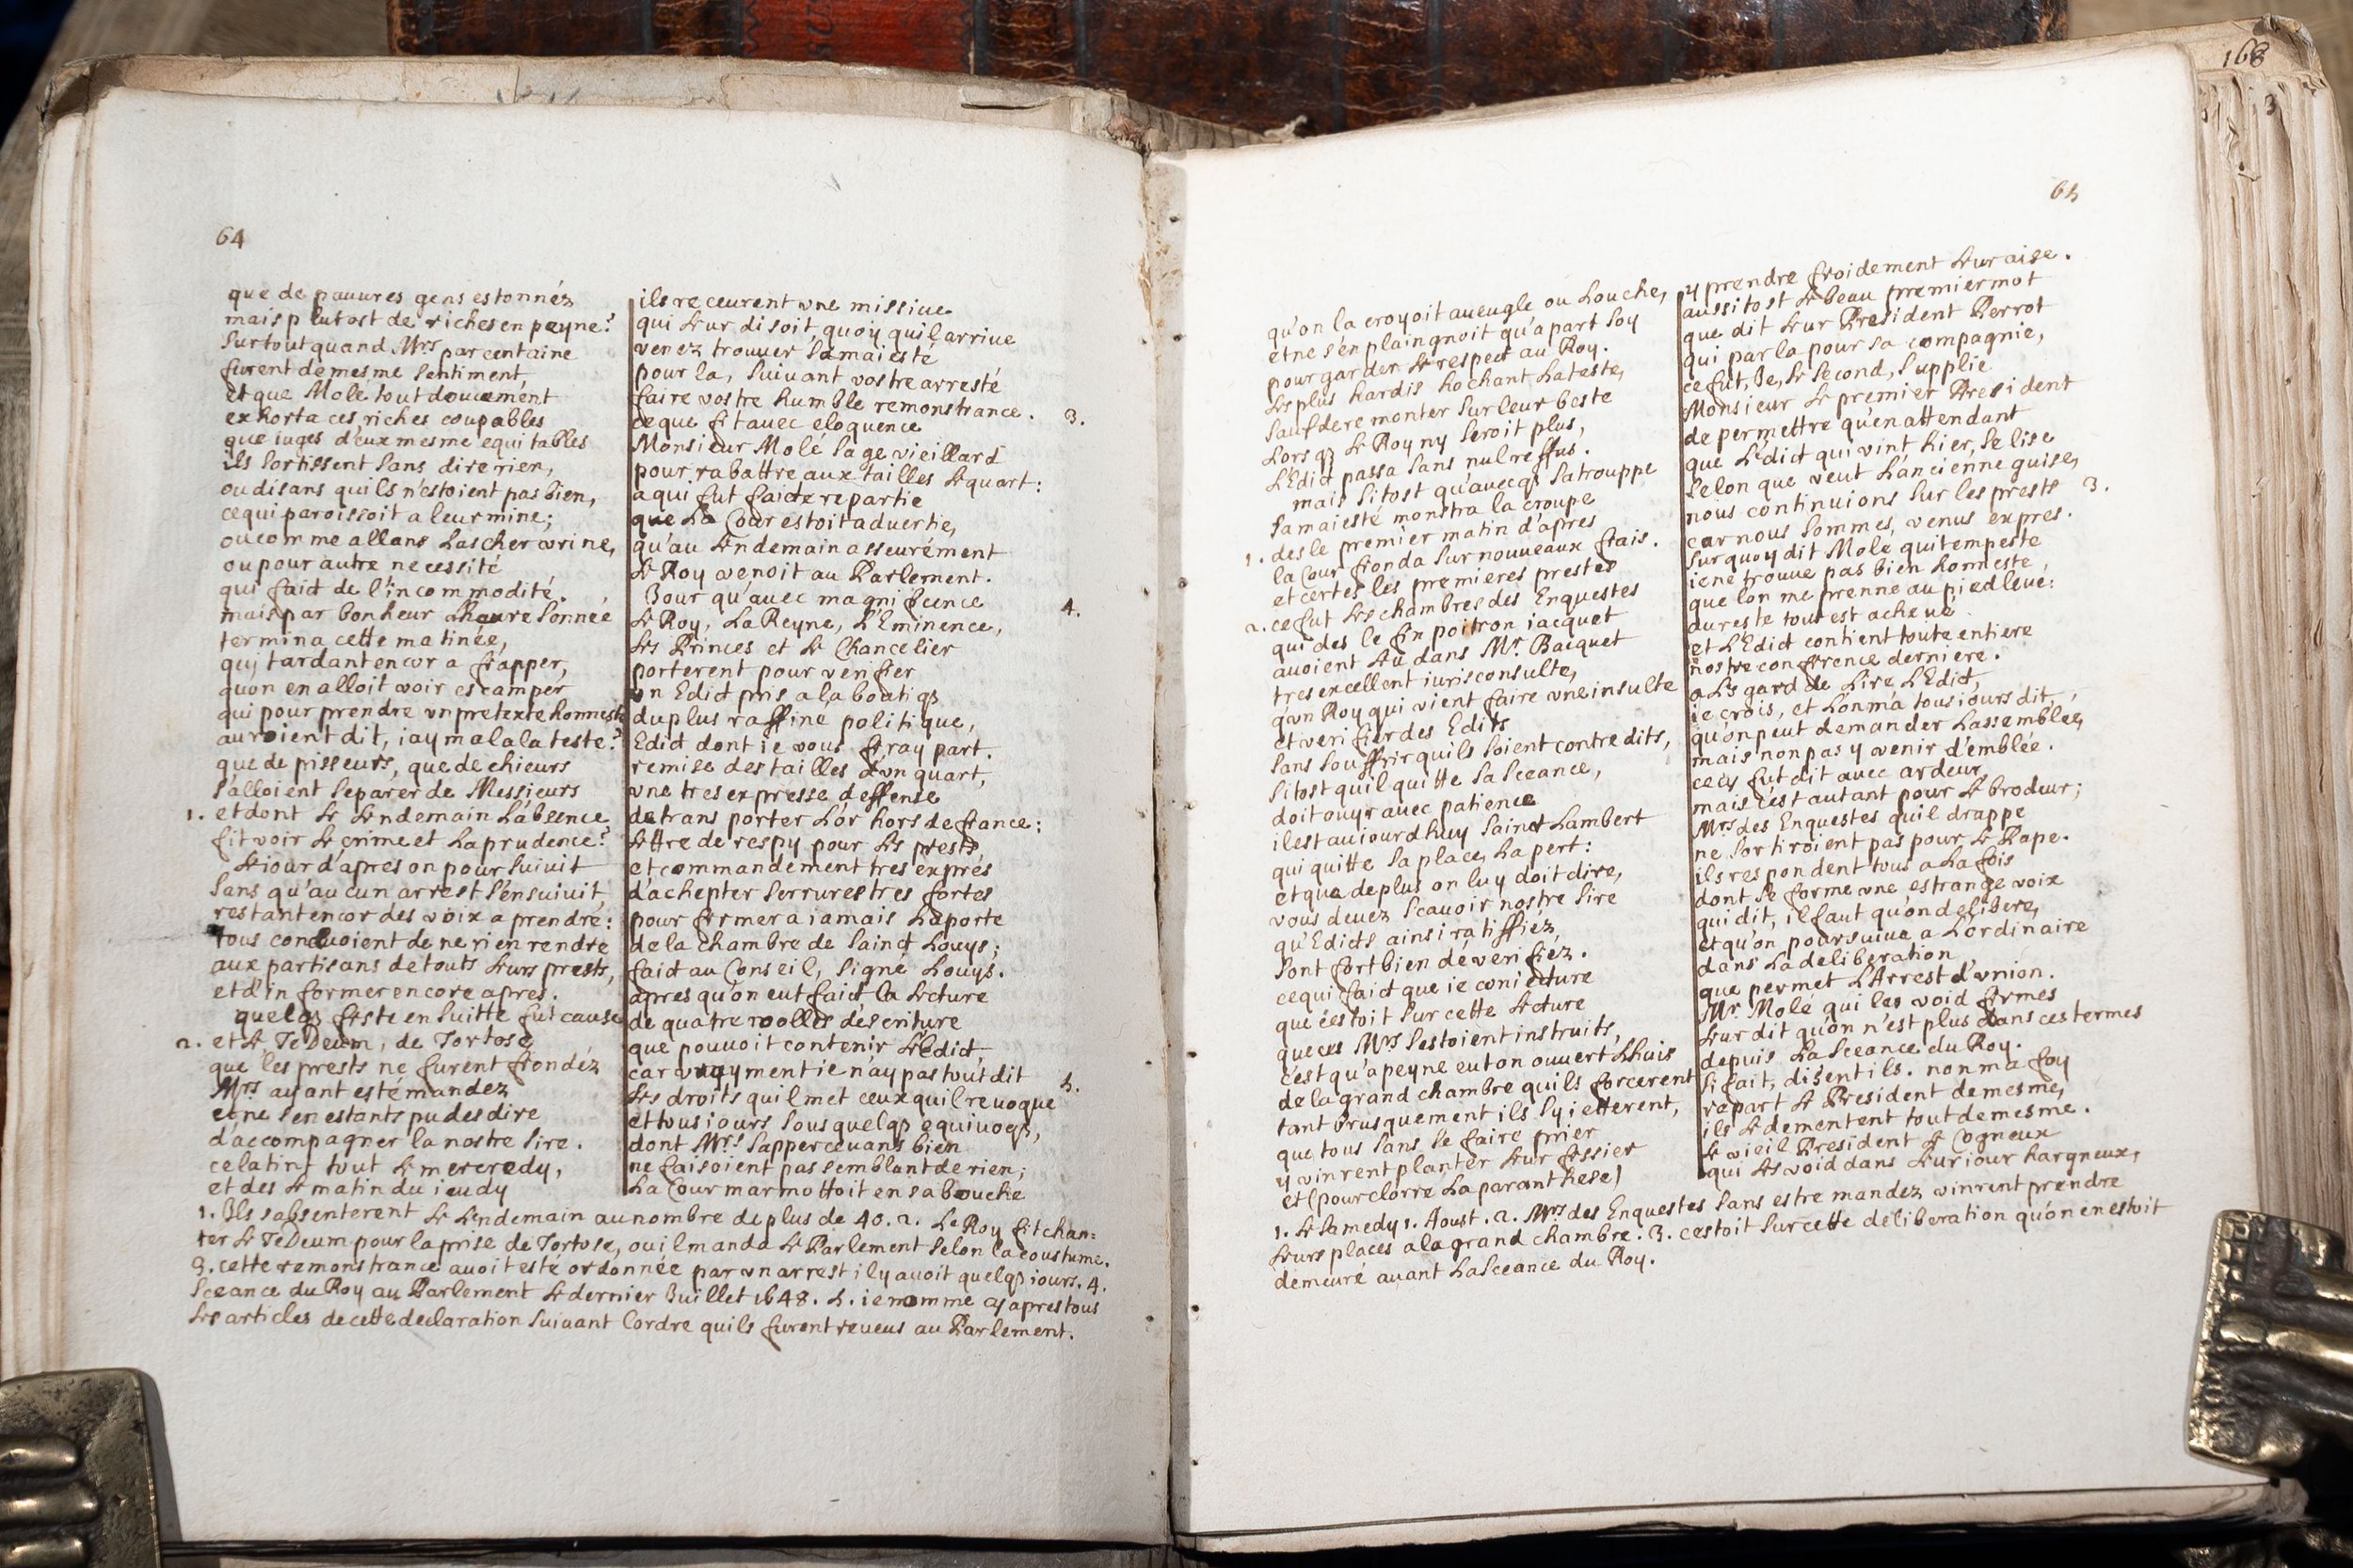 64
que de pauures gens estonnéz
mais plutost de riches en peyne?
surtout quand Mrs par centaine
furent de mesme sentiment,
et que Molé tout doucement
exhorta ces riches coupables
que iuges d'eux mesme equitables
ils sortissent sans dire rien,
ou disans quils n'estoient pas bien,
ce qui paroissoit a leur mine;
ou comme allans lascher vrine,
ou pour autre necessité
qui faict de l'incommodité.
mais par bonheur lheure sonnée
termina cette matinée,
qui tardant encor a frapper,
quon en alloit voir escamper
qui pour prendre vn pretexte honneste
auroient dit, iay mal a la teste?
que de pisseurs, que de chieurs
s'alloient separer de Messieurs
1. et dont le lendemain l'absence
fit voir le crime et la prudence?
le iour d'apres on poursuiuit
sans qu'aucun arrest s'ensuiuit,
restant encor des voix a prendre:
tous concluoient de ne rien rendre
aux partisans de touts leurs prests,
et d'informer encore apres.
quelqs feste en suitte fut cause
2. et le Te Deum, de Tortose
que les prests ne furent frondéz
Mrs ayant esté mandez
et ne s'en estants pu desdire
d'accompagner la nostre sire.
cela tint tout le mercredy,
et des le matin du ieudy
ils receurent vne missiue
qui leur disoit, quoy quil arriue
venez trouuer sa maiesté
pour la, suiuant vostre arresté
faire vostre humble remonstrance. 3.
ce que fit auec eloquence
Monsieur Molé sage vieillard
pour rabattre aux tailles le quart:
a qui fut faicte repartie
que la Cour estoit aduertie,
qu'au lendemain asseurément
le Roy venoit au Parlement.
Iour qu'auec magnificence 4.
le Roy, La Reyne, L'Eminence,
les Princes et le Chancelier
porterent pour verifier
vn Edict pris a la boutiqs
du plus raffine politique,
Edict dont ie vous feray part.
remise des tailles d'vn quart,
vne tres expresse deffense
de transporter l'or hors de france:
lettre de respy pour les prests,
et commandement tres exprés
d'achepter serrures tres fortes
pour fermer a iamais la porte
de la chambre de sainct Louys;
faict au Conseil, signé Louys.
apres qu'on eut faict la lecture
de quatre roolles descriture
que pouuoit contenir l'Edict,
car vrayment ie n'ay pas tout dit 5.
les droits quil met ceux quil reuoque
et tousiours sous quelqs equiuoqs,
dont Mrs s'apperceuans bien
ne faisoient pas semblant de rien;
La Cour marmottoit en sa bouche
1. Ils s'absenterent le lendemain au nombre de plus de 40. 2. Le Roy fit chan=
ter le Te Deum pour la prise de Tortose, ou il manda le Parlement selon la coustume.
3. cette remonstrance auoit esté ordonnée par vn arrest il y auoit quelqs iours. 4.
Sceance du Roy au Parlement le dernier Iuillet 1648. 5. ie nomme cy apres tous
les articles de cette declaration suiuant l'ordre quils furent reueus au Parlement.
168
65
qu'on la croyoit aueugle ou louche,
et ne s'en plaingnoit qu'a part soy
pour garder le respect au Roy.
les plus hardis hochant la teste,
sauf de remonter sur leur beste
Lors qs le Roy ny seroit plus,
L'Edict passa sans nul reffus.
mais si tost qu'auecqs sa trouppe
sa maiesté monstra la croupe
1. des le premier matin d'apres
la Cour fronda sur nouueaux frais.
et certes les premieres prestes
2. ce fut les chambres des Enquestes
qui des le fin poitron iacquet
auoient leu dans Mr. Bacquet
tres excellent iurisconsulte,
q'vn Roy qui vient faire vne insulte
et verifier des Edits
sans souffrir quils soient contredits,
si tost quil quitte sa sceance,
doit ouyr auec patience
il est auiourdhuy sainct Lambert
qui quitte sa place, la pert:
et que de plus on luy doit dire,
vous deuez scauoir nostre sire
qu'Edicts ainsi ratiffiéz,
sont fort bien déverifiez.
ce qui faict que ie coniecture
que c'estoit sur cette lecture
que ces Mrs s'estoient instruits,
c'est qu'a peyne eut on ouuert lhuis
de la grand chambre quils forcerent
tant brusquement ils s'y ietterent,
que tous sans se faire prier
y vinrent planter leur fessier
et (pour clorre la paranthese)
y prendre froidement leur aise.
aussi tost le beau premier mot
que dit leur President Perrot
qui parla pour sa compagnie,
ce fut, Ie, le second, supplie
Monsieur le premier President
de permettre qu'en attendant
que l'Edict qui vint hier, se lise
selon que veut l'ancienne guise,
nous continuions sur les prests 3.
car nous sommes, venus expres.
surquoy dit Molé qui tempeste
ie ne trouue pas bien honneste,
que lon me prenne au pied leué:
du reste tout est acheué
et l'Edict contient toute entiere
nostre conference derniere.
a l'esgard de lire l'Edict,
ie crois, et lon m'a tousiours dit,
qu'on peut demander l'assemblée,
mais non pas y venir d'emblée.
cecy fut dit auec ardeur,
mais c'est autant pour le brodeur;
Mrs des Enquestes quil drappe
ne sortiroient pas pour le Pape.
ils respondent tous a la fois
dont se forme vne estrange voix
qui dit, il faut qu'on delibere,
et qu'on poursuiue a l'ordinaire
dans la deliberation
que permet l'Arrest d'vnion.
Mr. Molé qui les void fermes
leur dit qu'on n'est plus dans ces termes
depuis la sceance du Roy.
si fait, disent ils. non ma foy
repart le President de mesme,
ils le dementent tout de mesme.
le vieil President le Cogneux
qui les void dans leur iour hargneux,
1. le samedy 1. Aoust. 2. Mrs des Enquestes sans estre mandez vinrent prendre
leurs places a la grand chambre. 3. cestoit sur cette deliberation qu'on en estoit
demeuré auant la sceance du Roy.